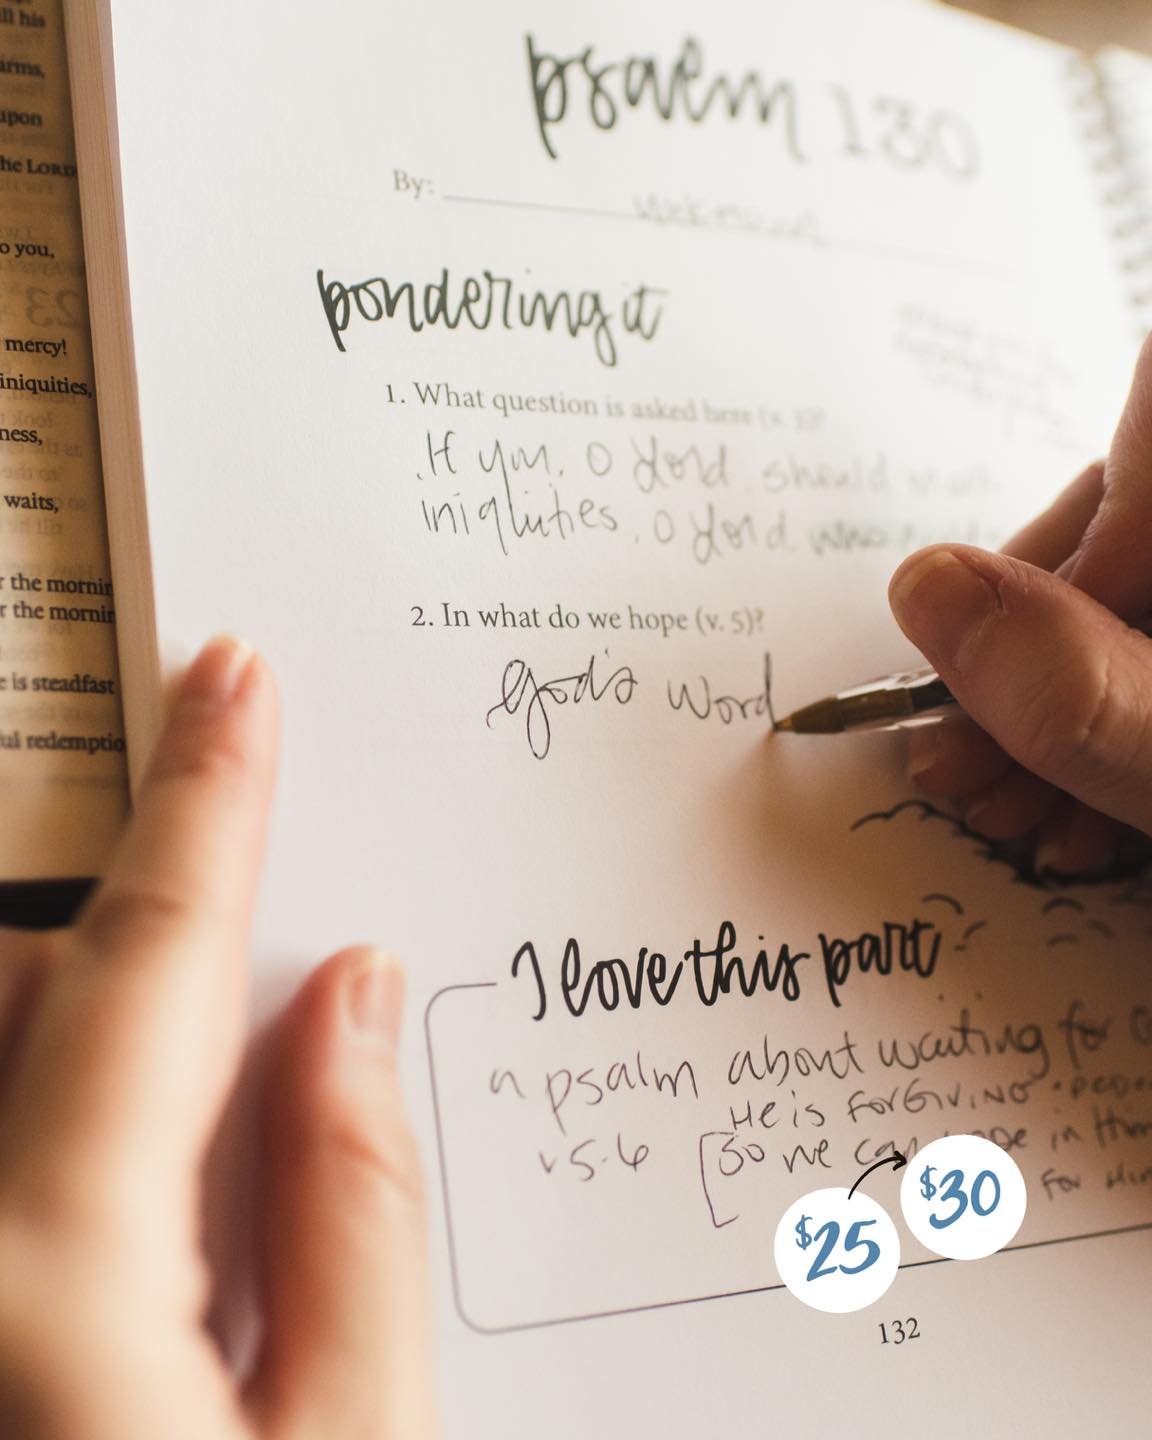 ll his
arms,
upon
he LORD
o you,
mercy!
iniquities,
ness,
waits,
r the mornin
r the mornin
e is steadfast
ful redemptio
psalm 130
By:
pondering it
1. What question is asked here (v. 3)?
If you, O Lord should
iniquities, O Lord, who
2. In what do we hope (v. 5)?
God's Word
I love this part
a psalm about waiting for G
He is FORGIVING
v 5-6 So we can hope in Him
FOR Him
$25
$30
132